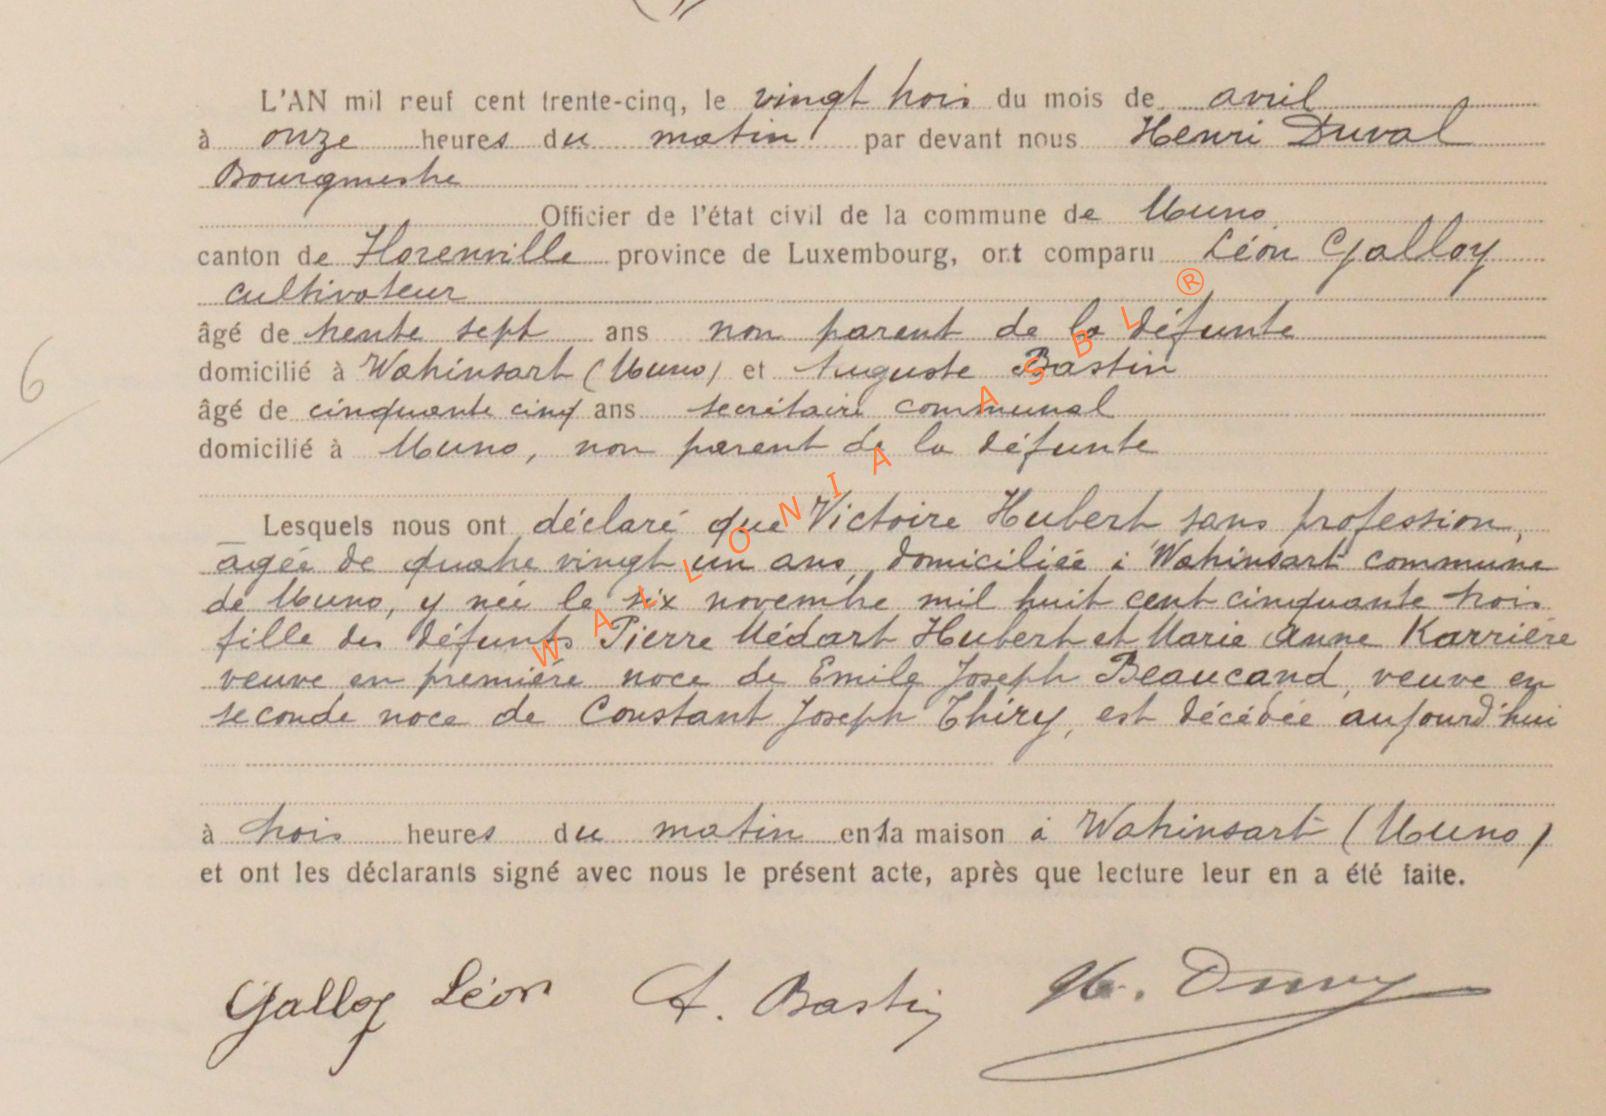 L'AN mil neuf cent trente-cinq, le vingt trois du mois de avril
à onze heures du matin par devant nous Henri Duval
Bourgmestre
Officier de l'état civil de la commune de Muno
canton de Florenville province de Luxembourg, ont comparu Léon Galloy
cultivateur
âgé de trente sept ans non parent de la défunte
domicilié à Wahinsart (Muno) et Auguste Bastin
âgé de cinquante cinq ans secrétaire communal
domicilié à Muno, non parent de la défunte
6
Lesquels nous ont déclaré que Victoire Hubert sans profession,
agée de quatre vingt un ans, domiciliée à Wahinsart commune
de Muno, y née le six novembre mil huit cent cinquante trois
fille des défunts Pierre Médart Hubert et Marie Anne Karrière
veuve en première noce de Emile Joseph Beaucand, veuve en
seconde noce de Constant Joseph Thiry, est décédée aujourd'hui
à trois heures du matin en sa maison à Wahinsart (Muno)
et ont les déclarants signé avec nous le présent acte, après que lecture leur en a été faite.
Galloy Léon A. Bastin H. Duval
WALLONIA ASBL ®